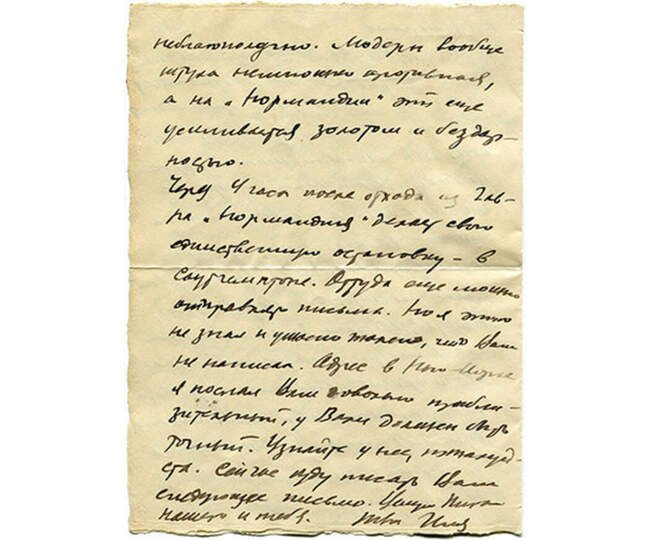 неблагополучно. Модерн вообще
штука немножко противная,
а на „Нормандии" это еще
усиливается золотом и бездар-
ностью.
Через 4 часа после отхода из Гав-
ра „Нормандия" делает свою
единственную остановку – в
Саутгемптоне. Оттуда еще можно
отправлять письма. Но я этого
не знал и ужасно жалею, что Вам
не написал. Адрес в Нью-Йорке
я послал Вам довольно прибли-
зительный, у Вали должен быть
точный. Узнайте у нее, пожалуй-
ста. Сейчас иду писать Вам
следующее письмо. Целую
нашего и тебя. Твой Иля